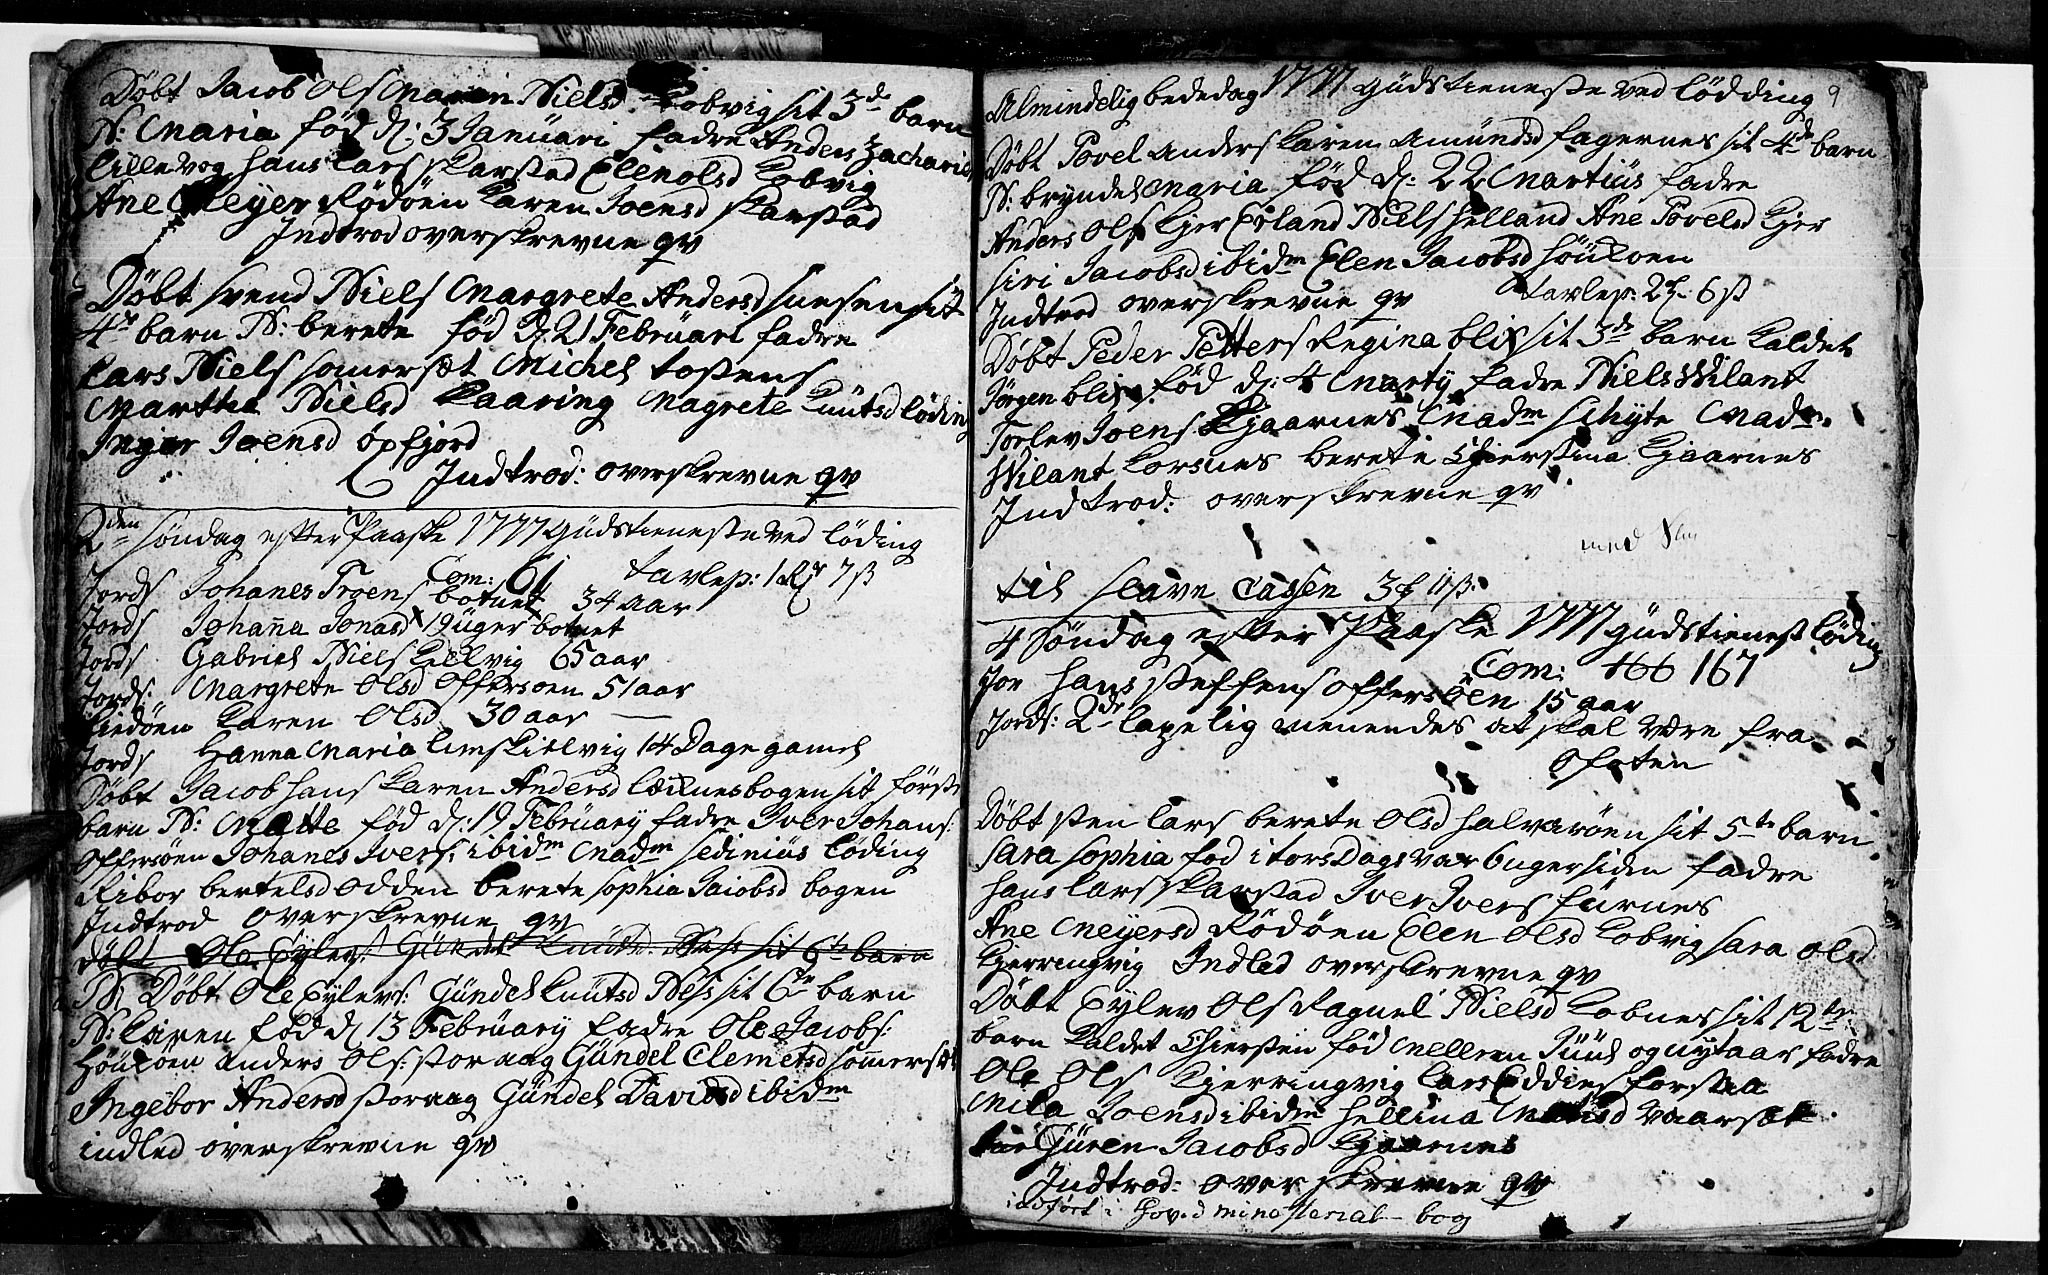 Døbt Jacob Ols Maren Nielsd Kobvig sit 3de barn
N: Maria fød d: 3 Januari fadre Anders Zacharias
Lillevog Hans Lars Skarstad Elen Olsd Kobvig
Ane Meyer Rødøen Karen Joensd Skarstad
Indtrod overskrevne qv
Døbt Svend Niels Margrete Andersd sit
4de barn N: Berete fød d: 21 Februari fadre
Lars Niels Somersæt Michel
Marthe Nielsd Kaaring Magrete Knutsd Løding
Inger Joensd Øxfjord
Indtrod: overskrevne qv
2den Søndag efter Paaske 1777 Gudstieneste ved Løding
Com: 61 tavlep: 1 7 ß
Jords Johanes Troens Botnet 34 aar
Jords Johanna Jonasd 19 uger Botnet
Jords Gabriel Niels Kielvig 65 aar
Jords: Margrete Olsd Offersøen 51 aar
Karen Olsd 30 aar
Jords Hanna Maria Kielvig 14 Dage gamel
Døbt Jacob Hans Karen Andersd Læknesbogen sit første
barn N: Mætte fød d: 19 Februarij fadre Iver Johans:
Offersøen Johanes Ivers: ibidm Madm Sedinius Løding
Ribor Bertelsd Odden Berete Sophia Jacobsd Bogen
Indtrod overskrevne qv
Døbt Ole Eylers Gundel Knutsd Næss sit 6te barn
N: Døbt Ole Eylers: Gundel Knutsd Næss sit 6te barn
N: Karen fød d 13 Februarij fadre Ole Jacobs:
Høuløen Anders Ols: Storaag Gundel Clemetsd Sommersæt
Ingebor Andersd Storaag Gundel Davidsd ibidm
indled overskrevne qv
9
Almindelig bededag 1777 Gudstieneste ved Lødding
Døbt Povel Anders Karen Amundsd Fagernes sit 4de barn
N: Bryndel Maria fød d: 22 Martius fadre
Anders Ols Kjer Erland Niels Helland Ane Povelsd Kjer
Siri Jacobsd ibidm Elen Jacobsd Høuløen
Indtrod overskrevne qv tavlep: 2 6 ß
Døbt Peder Petters Regina Blix sit 3de barn kaldet
Jörgen Blix fød d: 4 Martij fadre Niels Wilant
Torlev Joens Kjaarnes Madm Schyte Madm
Wilant Korsnes Berete Chierstina Kjaarnes
Indtrod: overskrevne qv
med
til Slave Cassen 3 11 ß.
4 Søndag efter Paaske 1777 Gudstienest Løding
Com: 166 167
Jor Hans Steffens Offersøen 15 aar
Jords: 2de lapelig menendes at skal være fra
Ofoten
Døbt Sten Lars Berete Olsd Halvarøen sit 5te barn
Sara Sophia fød i torsdags var 6 uger siden fadre
Hans Lars Skarstad Iver Ivers Furnes
Ane Meyersd Rødøen Elen Olsd Kobvig Sara Olsd
Kjerringvig Indled overskrevne qv
Døbt Eylev Ols Ragnel Nielsd Kobnes sit 12te
barn kaldet Chiersten fød mellem Juul og nytaar fadre
Ole Ols Kjerringvig Lars Eddies Forstaa
Mila Joensd ibidm Hellina Matisd Vaarsæt
Guren Jacobsd Kjaarnes
Indtrod: over skrevne qv
indført i Hoved minesterial-bog